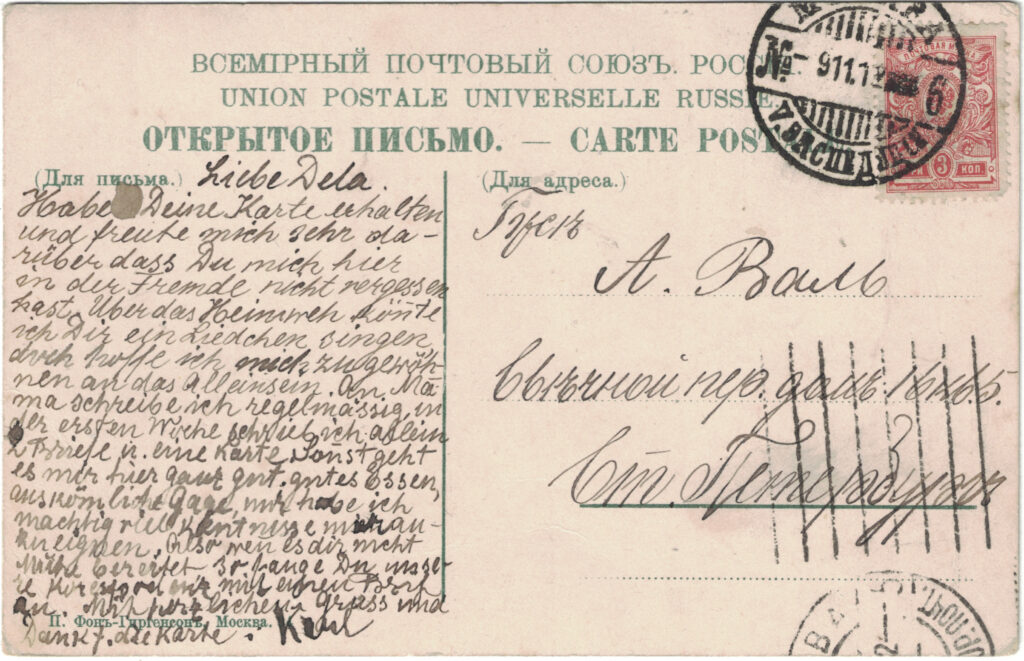 ВСЕМІРНЫЙ ПОЧТОВЫЙ СОЮЗЪ. РОС
UNION POSTALE UNIVERSELLE RUSSIE.
ОТКРЫТОЕ ПИСЬМО. — CARTE POST
(Для письма.)
Liebe Dela.
Habe Deine Karte erhalten
und freute mich sehr da-
rüber dass Du mich hier
in der Fremde nicht vergessen
hast. Über das Heimweh könnte
ich Dir ein Liedchen singen
doch hoffe ich mich zu gewöh-
nen an das Alleinsein. An Ma-
ma schreibe ich regelmässig, in
der ersten Woche schrieb ich allein
2 Briefe u. eine Karte. Sonst geht
es mir hier ganz gut. gutes Essen,
auskömliche Gage, nur habe ich
mächtig viel Kentnisse mir an-
zueignen. Also wen es dir nicht
Mühe bereitet so lange Du
mit
Mit herzlichen Gruss und
Dank f. die Karte. Karl
П. Фонъ-Гиргенсонъ, Москва.
(Для адреса.)
А. Валь
пер. домъ 16 кв 5.
Ст. Петербургъ
№
911.12
6
3 КОП